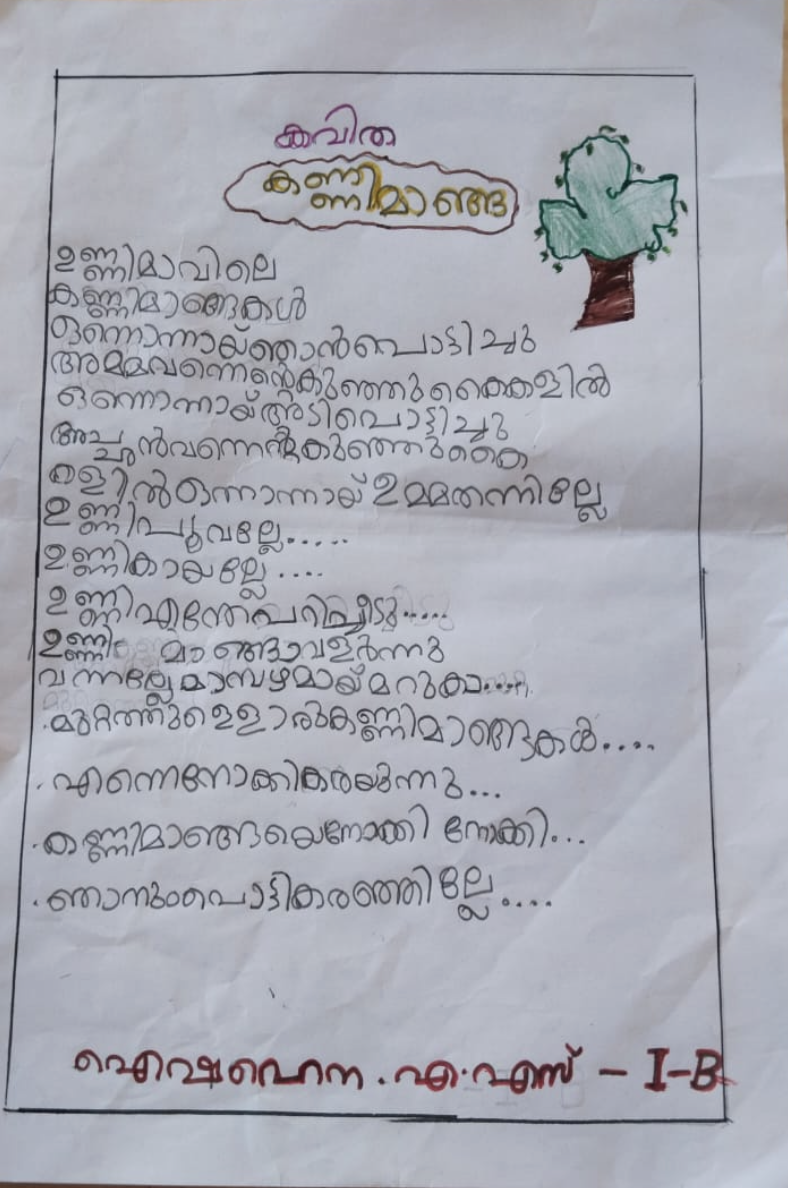 കവിത
കണ്ണിമാങ്ങ
ഉണ്ണിമാവിലെ
കണ്ണിമാങ്ങകൾ
ഒന്നൊന്നായ്ഞാൻപൊട്ടിച്ചു
അമ്മവന്നെൻ്റെകുഞ്ഞുകൈകളിൽ
ഒന്നൊന്നായ്അടിപൊട്ടിച്ചു
അച്ഛൻവന്നെൻ്റെകുഞ്ഞുകൈ
കളിൽഒന്നൊന്നായ്ഉമ്മതന്നില്ലേ
ഉണ്ണിപൂവല്ലേ.....
ഉണ്ണികായല്ലേ....
ഉണ്ണിഎന്തേപറിച്ചീടു.....
ഉണ്ണി മാങ്ങാവളർന്നു
വന്നല്ലേമാമ്പഴമായ്മറുകാ....
.മുറ്റത്തുള്ളൊരുകണ്ണിമാങ്ങകൾ....
.എന്നെനോക്കികരയുന്നു...
.കണ്ണിമാങ്ങയെനോക്കി നോക്കി...
.ഞാനുംപൊട്ടികരഞ്ഞില്ലേ....
ഐഷഹെന.എ.എസ് - I-B